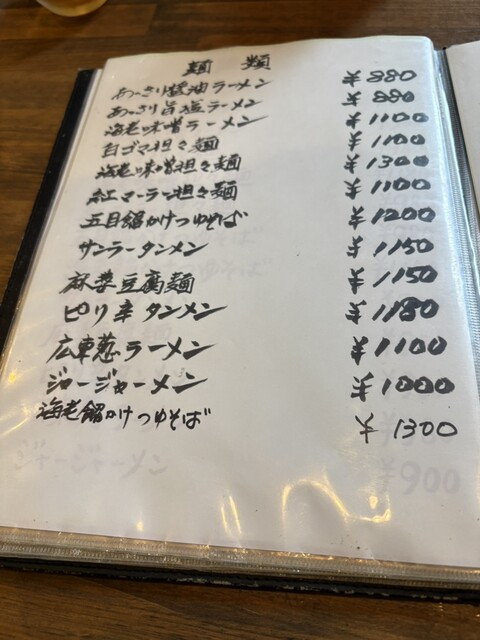 麺類
あっさり醤油ラーメン ¥880
あっさり旨塩ラーメン ¥880
海老味噌ラーメン ¥1100
白ゴマ担々麺 ¥1100
海老味噌担々麺 ¥1300
紅マーラー担々麺 ¥1100
五目餡かけつゆそば ¥1200
サンラータンメン ¥1150
麻婆豆腐麺 ¥1150
ピリ辛タンメン ¥1180
広東葱ラーメン ¥1100
ジャージャーメン ¥1000
海老餡かけつゆそば ¥1300
ジャージャーメン ¥900